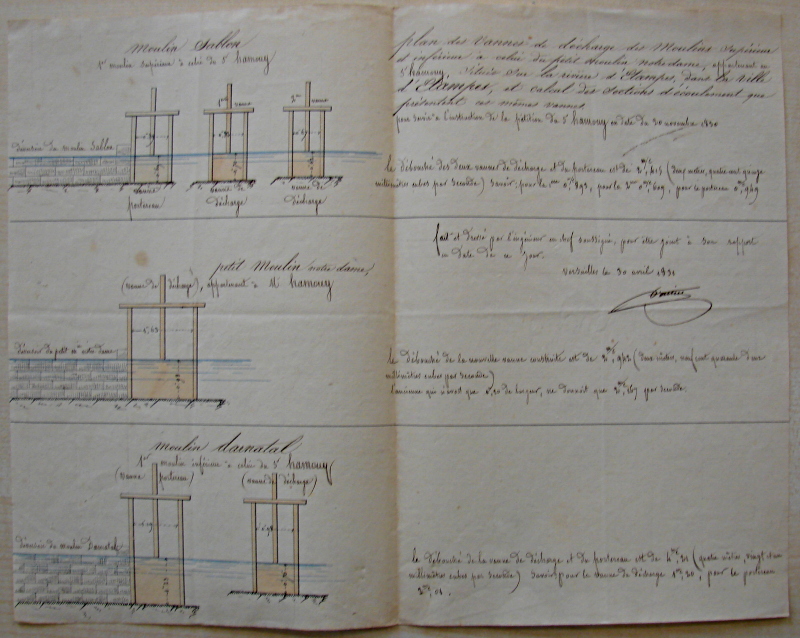 moulin Sablon
1er moulin supérieur à celui de Sr hamouy
1ere vanne
2eme vanne
déversoir du moulin Sablon
vanne portereau
vanne de décharge
vanne de décharge
petit Moulin notre dame,
(vanne de décharge), appartenant à M. hamouy
1,63
déversoir du petit min notre dame
moulin darnatal
1er moulin inférieur à celui du Sr hamouy
(vanne portereau)
(vanne de décharge)
déversoir du moulin Darnatal
plan des vannes de décharge des Moulins supérieur
et inférieur à celui du petit Moulin notre dame, appartenant au
Sr hamouy, situés sur la rivière d'Etampes, dans la ville
d'Etampes, et calcul des sections d'écoulement que
présentent ces mêmes vannes
pour servir à l'instruction de la pétition du Sr hamouy en date du 30 novembre 1830
le débouché des deux vannes de décharge et du portereau est de (deux mètres, quatre cent quinze
millimètres cubes par seconde) savoir: pour la 1ere pour la 2eme pour le portereau
fait et dressé par l'ingénieur en chef soussigné, pour être joint à son rapport
en date de ce jour.
Versailles le 30 avril 1831
le débouché de la nouvelle vanne construite est de (deux mètres, neuf cent quarante deux
millimètres cubes par seconde)
l'ancienne qui n'avait que 1,20 de largeur, ne donnait que par seconde.
le débouché de la vanne de décharge et du portereau est de (quatre mètres, vingt et un
millimètres cubes par seconde) savoir pour la vanne de décharge pour le portereau